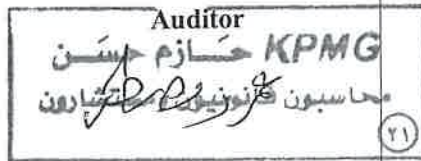 Auditor
KPMG حازم حسن
محاسبون قانونيون ومستشارون
٢١